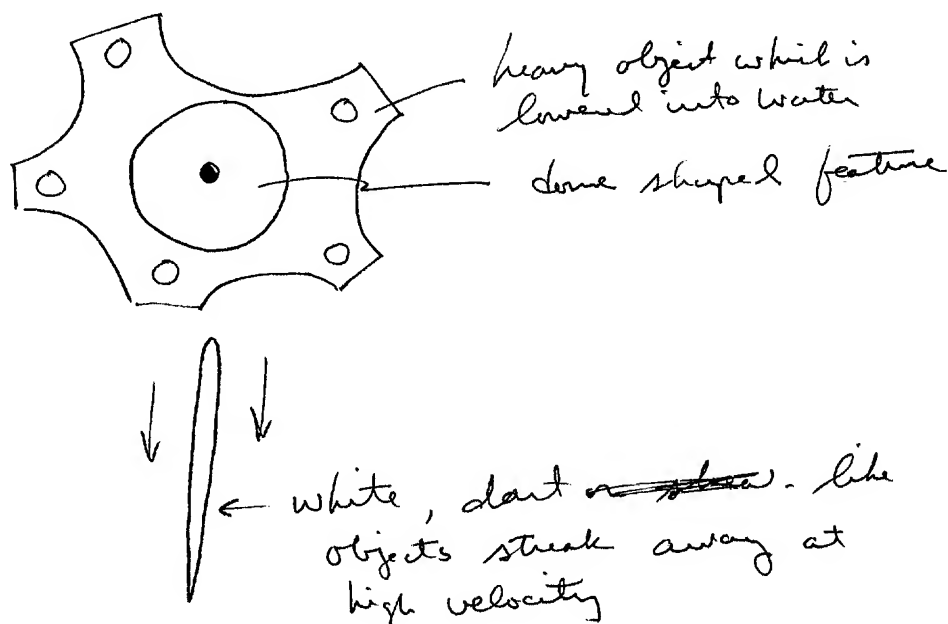 heavy object which is
lowered into water
dome shaped feature
white, dart - like
objects streak away at
high velocity